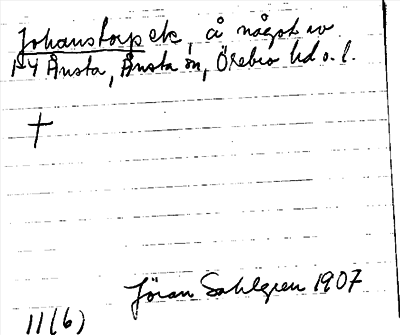 Johanstorp etc, å något av
1-4 Ånsta, Ånsta sn, Örebro hd o. l.
†
Jöran Sahlgren 1907
11(6)